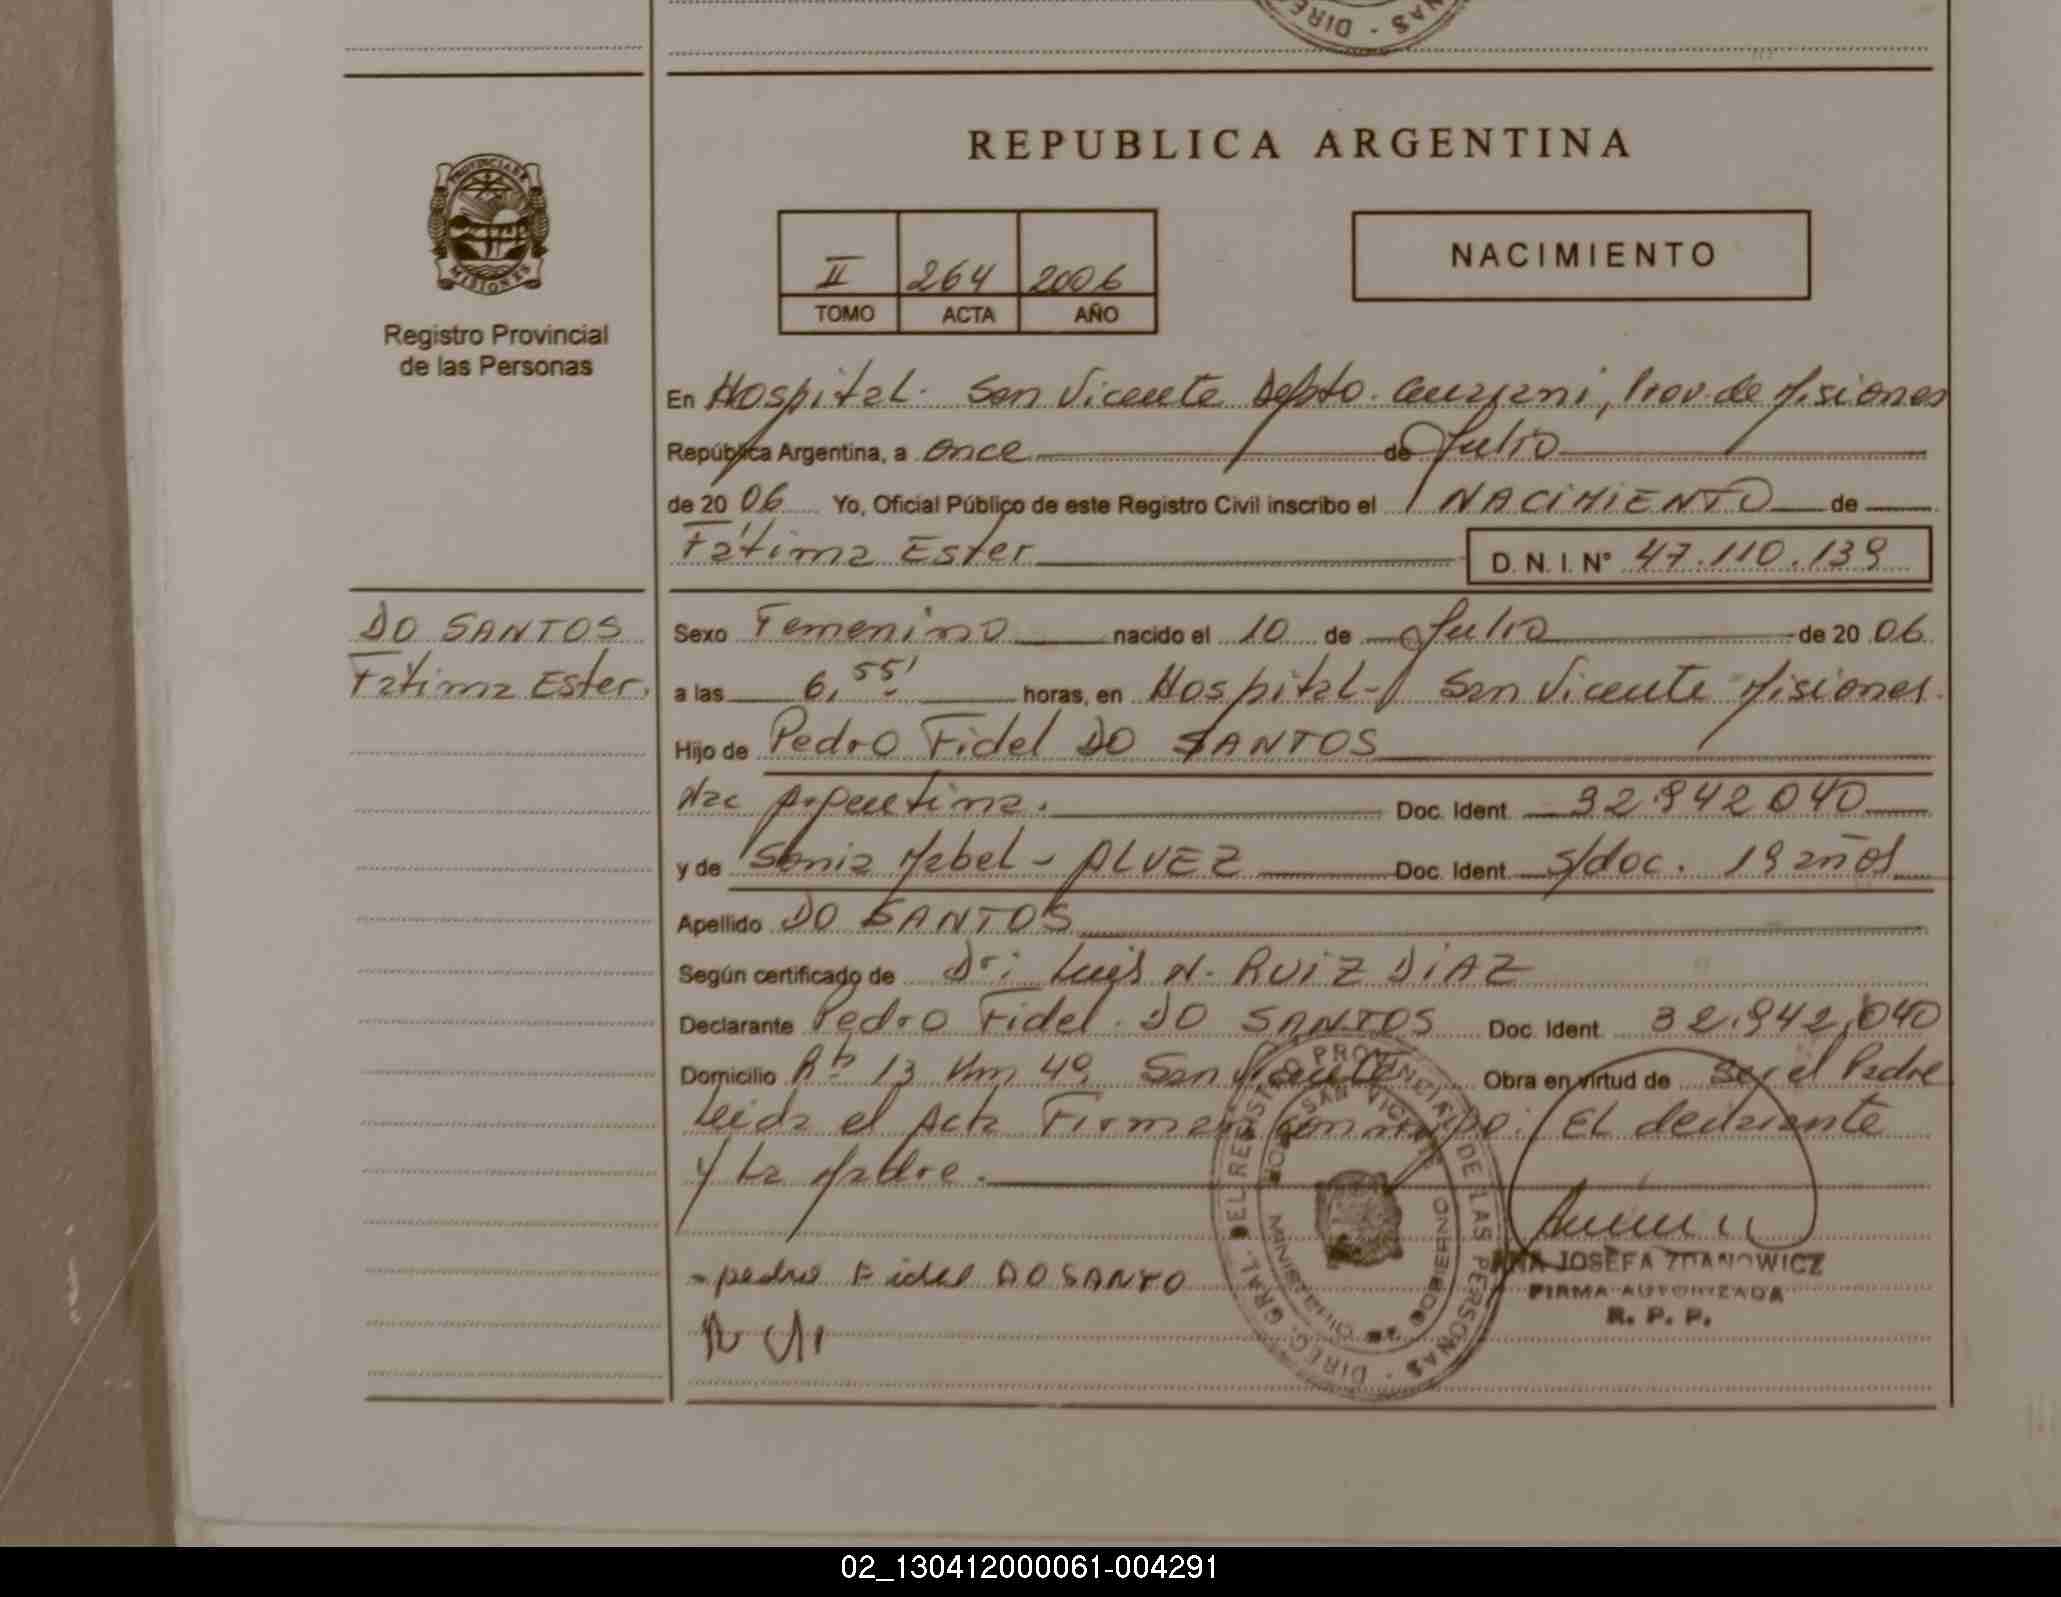 DIREC
NAS
REPUBLICA ARGENTINA
PROVINCIA DE
MISIONES
Registro Provincial
de las Personas
II 264 2006
TOMO ACTA AÑO
NACIMIENTO
En Hospital - San Vicente Depto. Guaraní, Prov. de Misiones
República Argentina, a once de Julio
de 2006 Yo, Oficial Público de este Registro Civil inscribo el NACIMIENTO de
Fátima Ester D. N. I. Nº 47.110.139
DO SANTOS
Fátima Ester.
Sexo Femenino nacido el 10 de Julio de 2006
a las 6,55' horas, en Hospital - San Vicente Misiones.
Hijo de Pedro Fidel DO SANTOS
Nac Argentina. Doc. Ident. 32.942040
y de Sonia Mabel - ALVEZ Doc. Ident. s/doc. 19 años
Apellido DO SANTOS
Según certificado de Dr: Luis N. RUIZ DIAZ
Declarante Pedro Fidel DO SANTOS Doc. Ident. 32.942,040
Domicilio 13 Km 40 San Vicente Obra en virtud de ser el Padre
Leida el Acta Firman conmigo: EL declarante
y La Madre.
pedro Fidel DO SANTO
DIREC. GRAL. DEL REGISTRO PROVINCIAL DE LAS PERSONAS
HOSP. SAN VICENTE
MINISTERIO DE GOBIERNO
ANA JOSEFA ZDANOWICZ
FIRMA AUTORIZADA
R. P. P.
02_130412000061-004291